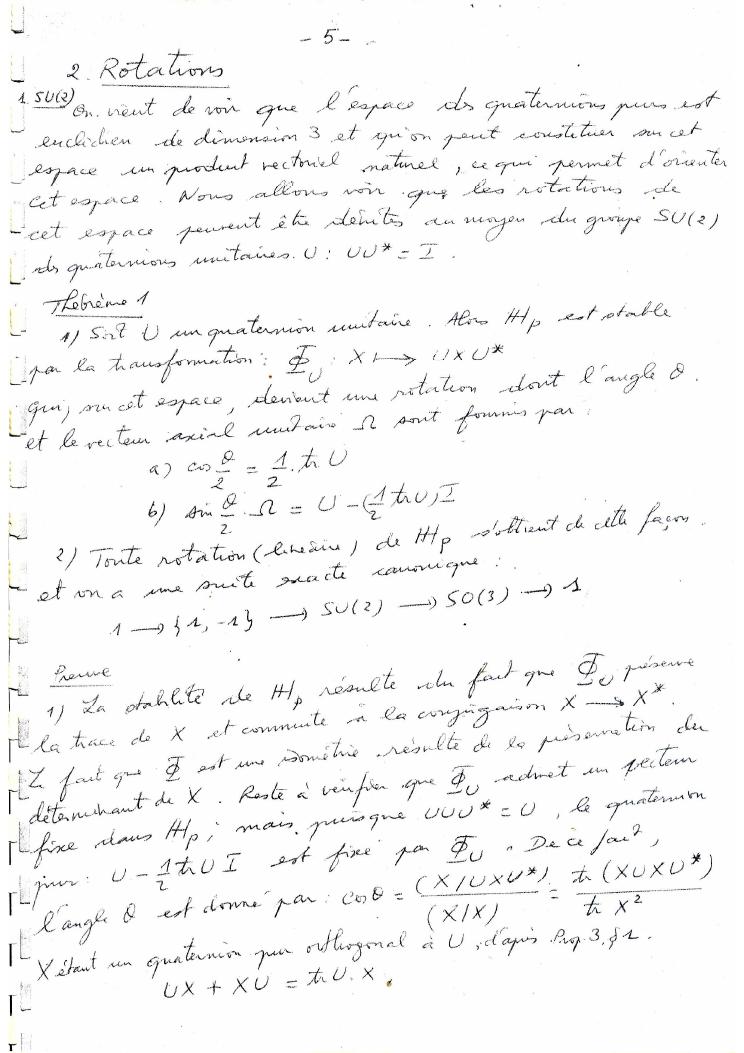 - 5 -
2. Rotations
1. SU(2)
On vient de voir que l'espace des quaternions purs est
euclidien de dimension 3 et qu'on peut constituer sur cet
espace un produit vectoriel naturel, ce qui permet d'orienter
cet espace. Nous allons voir que les rotations de
cet espace peuvent être décrites au moyen du groupe SU(2)
des quaternions unitaires. U : UU* = I.
Théorème 1
1) Soit U un quaternion unitaire. Alors ℍp est stable
par la transformation : Φ_U : X ⟼ UXU*
qui, sur cet espace, devient une rotation dont l'angle θ.
et le vecteur axial unitaire Ω sont fournis par :
a) cos θ/2 = 1/2 . tr U
b) sin θ/2 . Ω = U - (1/2 tr U) I
2) Toute rotation (linéaire) de ℍp s'obtient de cette façon.
et on a une suite exacte canonique :
1 → {1, -1} → SU(2) → SO(3) → 1
Preuve
1) La stabilité de ℍp résulte du fait que Φ_U préserve
la trace de X et commute à la conjugaison X → X*.
Le fait que Φ est une isométrie résulte de la préservation du
déterminant de X. Reste à vérifier que Φ_U admet un vecteur
fixe dans ℍp ; mais puisque UUU* = U, le quaternion
pur : U - 1/2 tr U I est fixé par Φ_U. De ce fait,
l'angle θ est donné par : cos θ = (X/UXU*)/(X/X) = tr (XUXU*)/tr X²
X étant un quaternion pur orthogonal à U, d'après Prop. 3, §1.
UX + XU = tr U. X.